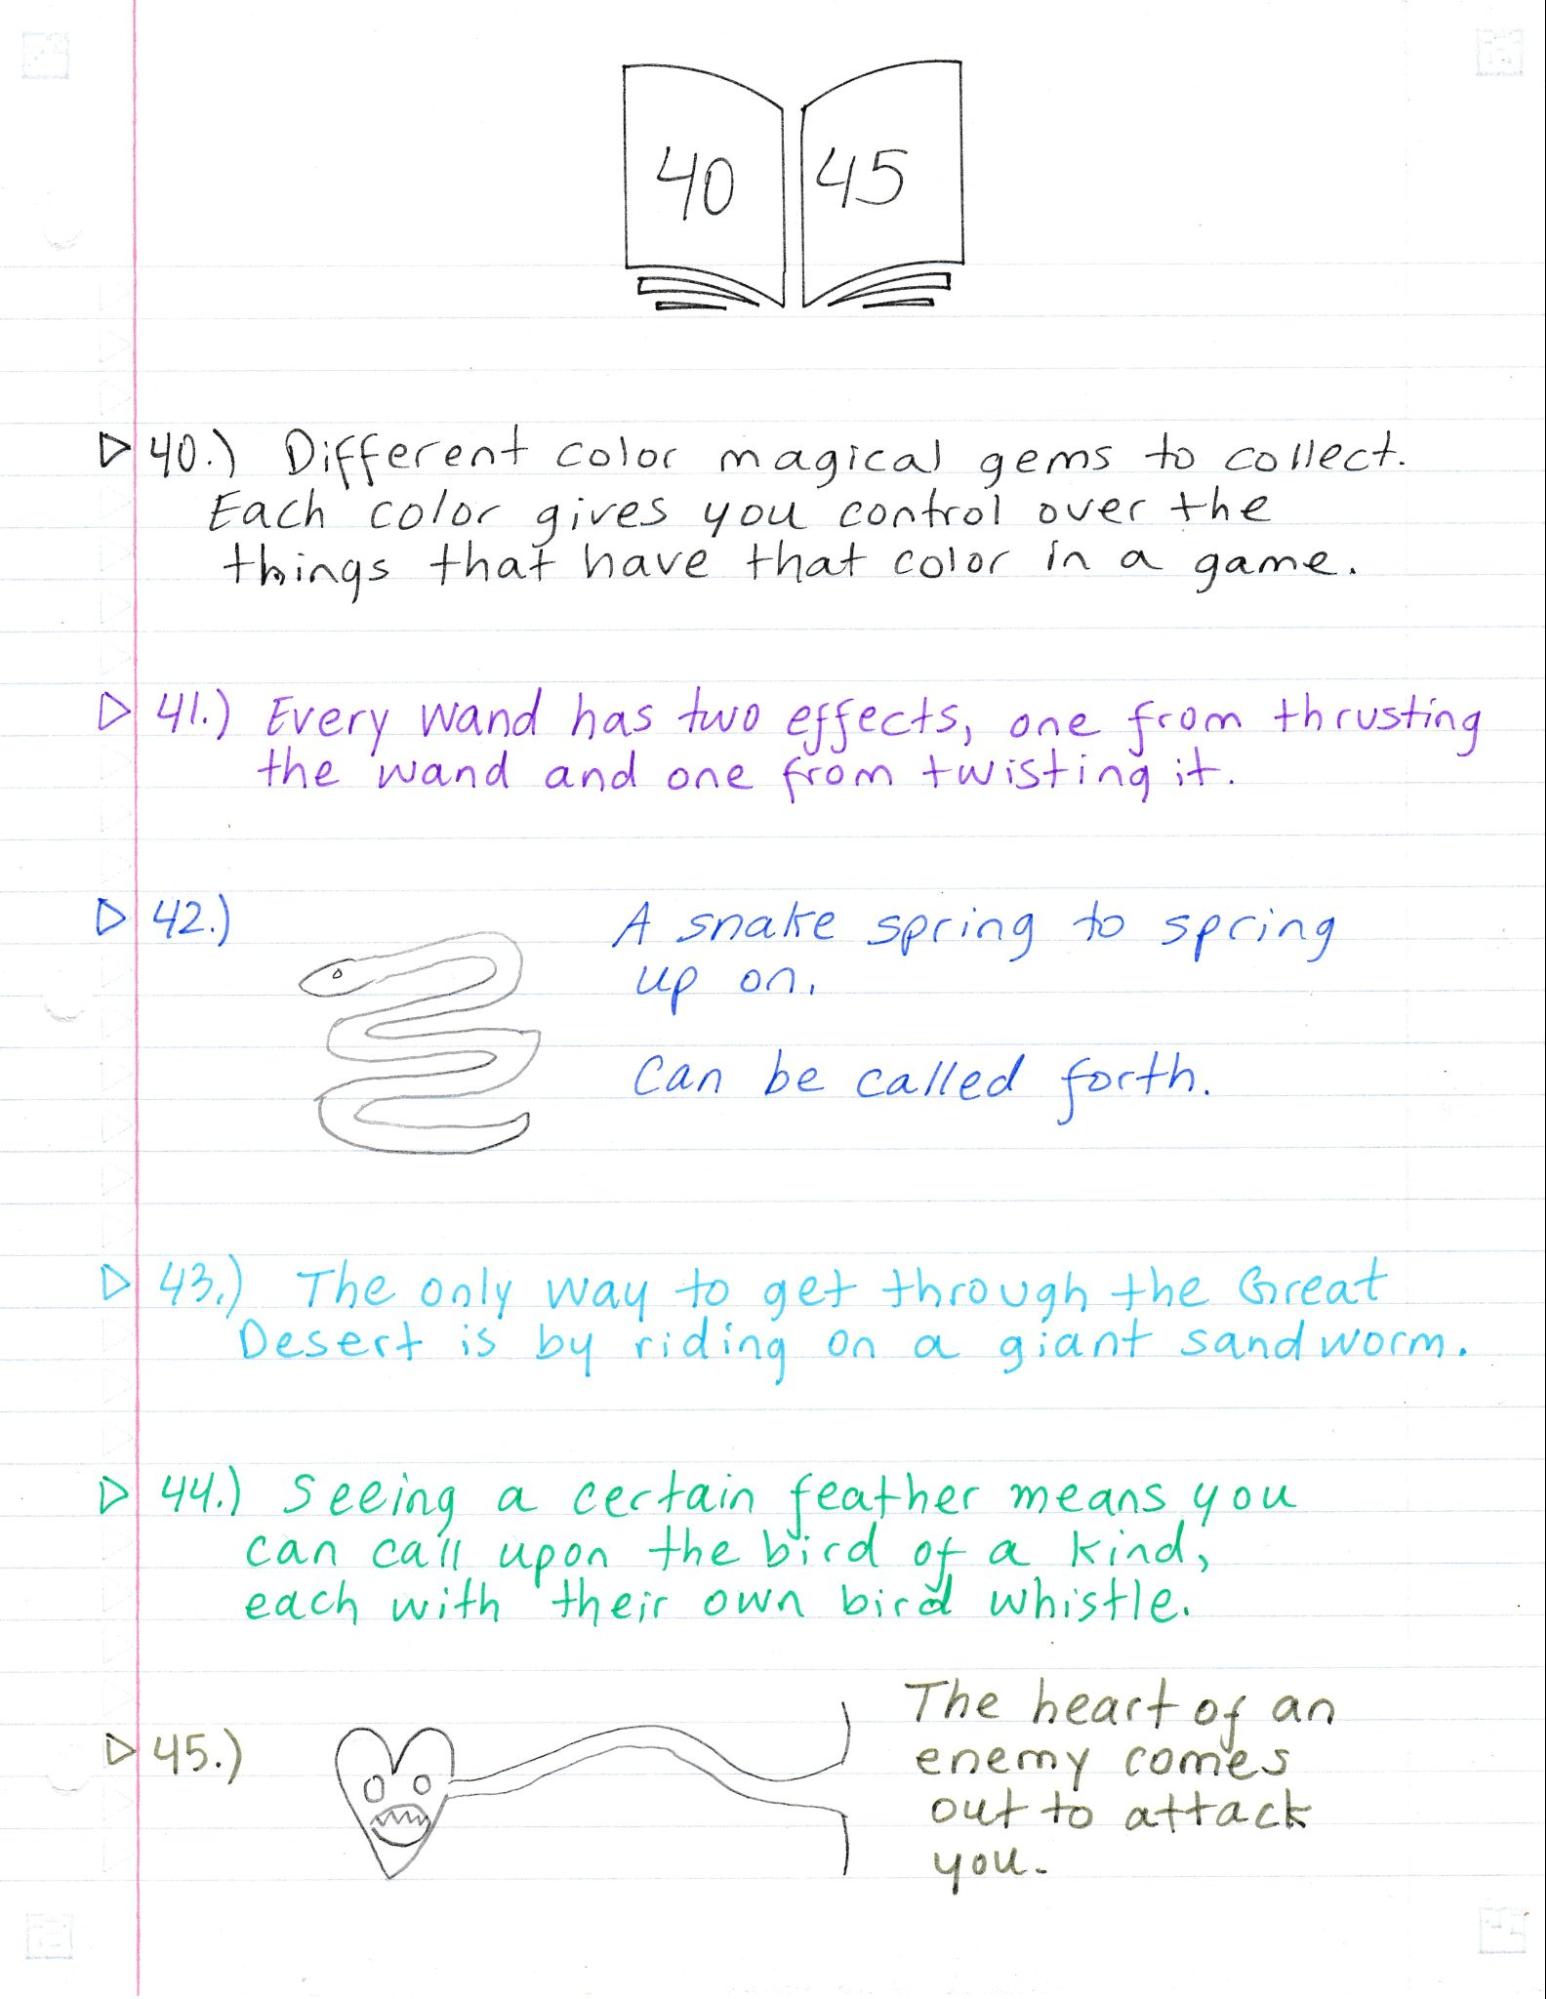 40 45
▷ 40.) Different color magical gems to collect.
Each color gives you control over the
things that have that color in a game.
▷ 41.) Every wand has two effects, one from thrusting
the wand and one from twisting it.
▷ 42.) A snake spring to spring
up on.
Can be called forth.
▷ 43.) The only way to get through the Great
Desert is by riding on a giant sandworm.
▷ 44.) Seeing a certain feather means you
can call upon the bird of a kind,
each with their own bird whistle.
▷ 45.) The heart of an
enemy comes
out to attack
you.